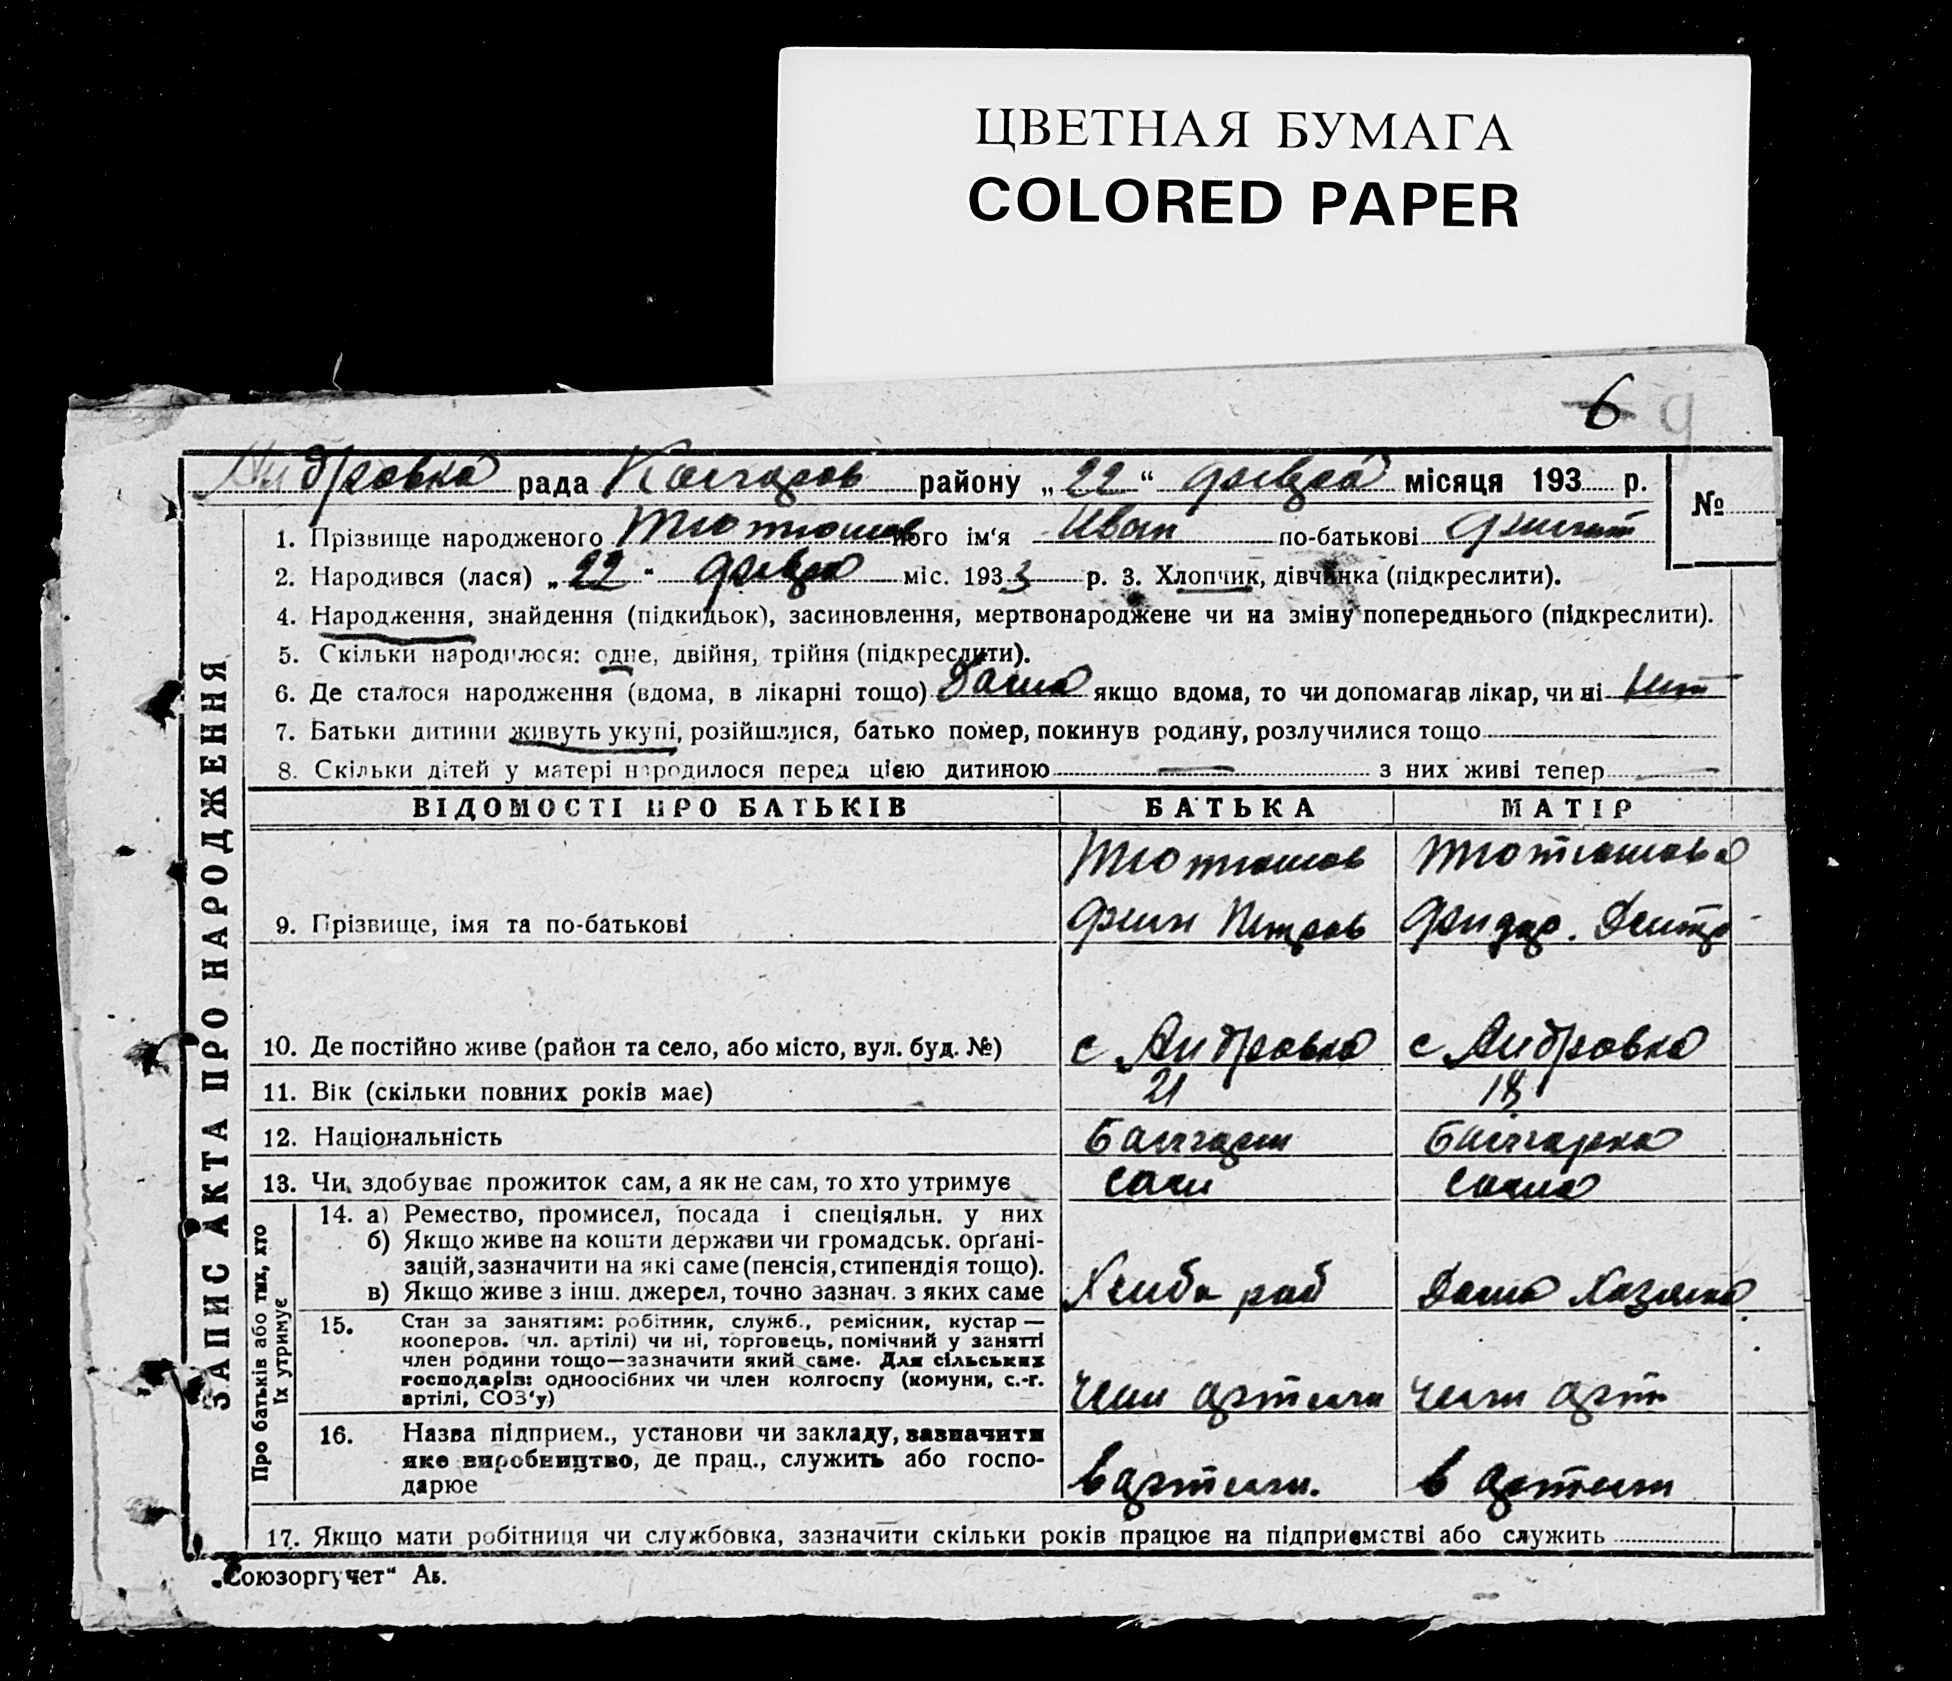 ЦВЕТНАЯ БУМАГА
COLORED PAPER
6 9
Андровка рада Колларов району „22“ феврал місяця 193 р. №
1. Прізвище народженого Тютюнов його ім'я Иван по-батькові
2. Народився (лася) „22“ феврал міс. 193 3 р. 3. Хлопчик, дівчинка (підкреслити).
4. Народження, знайдення (підкидьок), засиновлення, мертвонароджене чи на зміну попереднього (підкреслити).
5. Скільки народилося: одне, двійня, трійня (підкреслити).
6. Де сталося народження (вдома, в лікарні тощо) Дома якщо вдома, то чи допомагав лікар, чи ні нит
7. Батьки дитини живуть укупі, розійшлися, батько помер, покинув родину, розлучилися тощо
8. Скільки дітей у матері народилося перед цією дитиною — з них живі тепер —
ЗАПИС АКТА ПРО НАРОДЖЕННЯ
ВІДОМОСТІ ПРО БАТЬКІВ БАТЬКА МАТІР
9. Прізвище, імя та по-батькові
10. Де постійно живе (район та село, або місто, вул. буд. №) с Андровка с Андровка
11. Вік (скільки повних років має) 21 18
12. Національність Болгарин Болгарка
13. Чи здобуває прожиток сам, а як не сам, то хто утримує сам сама
Про батьків або тих, хто
їх утримує
14. а) Ремество, промисел, посада і спеціяльн. у них
б) Якщо живе на кошти держави чи громадськ. органі-
зацій, зазначити на які саме (пенсія, стипендія тощо).
в) Якщо живе з інш. джерел, точно зазнач. з яких саме Хлиба роб Дома Хазяика
15. Стан за заняттям: робітник, служб., ремісник, кустар —
кооперов. (чл. артілі) чи ні, торговець, помічний у занятті
член родини тощо—зазначити який саме. Для сільських
господарів: одноосібних чи член колгоспу (комуни, с.-г.
артілі, СОЗ'у) член артели член арт
16. Назва підприєм., установи чи закладу, зазначити
яке виробництво, де прац., служить або госпо-
дарюе в артели. в артели
17. Якщо мати робітниця чи службовка, зазначити скільки років працює на підприємстві або служить
„Союзоргучет“ Ак.